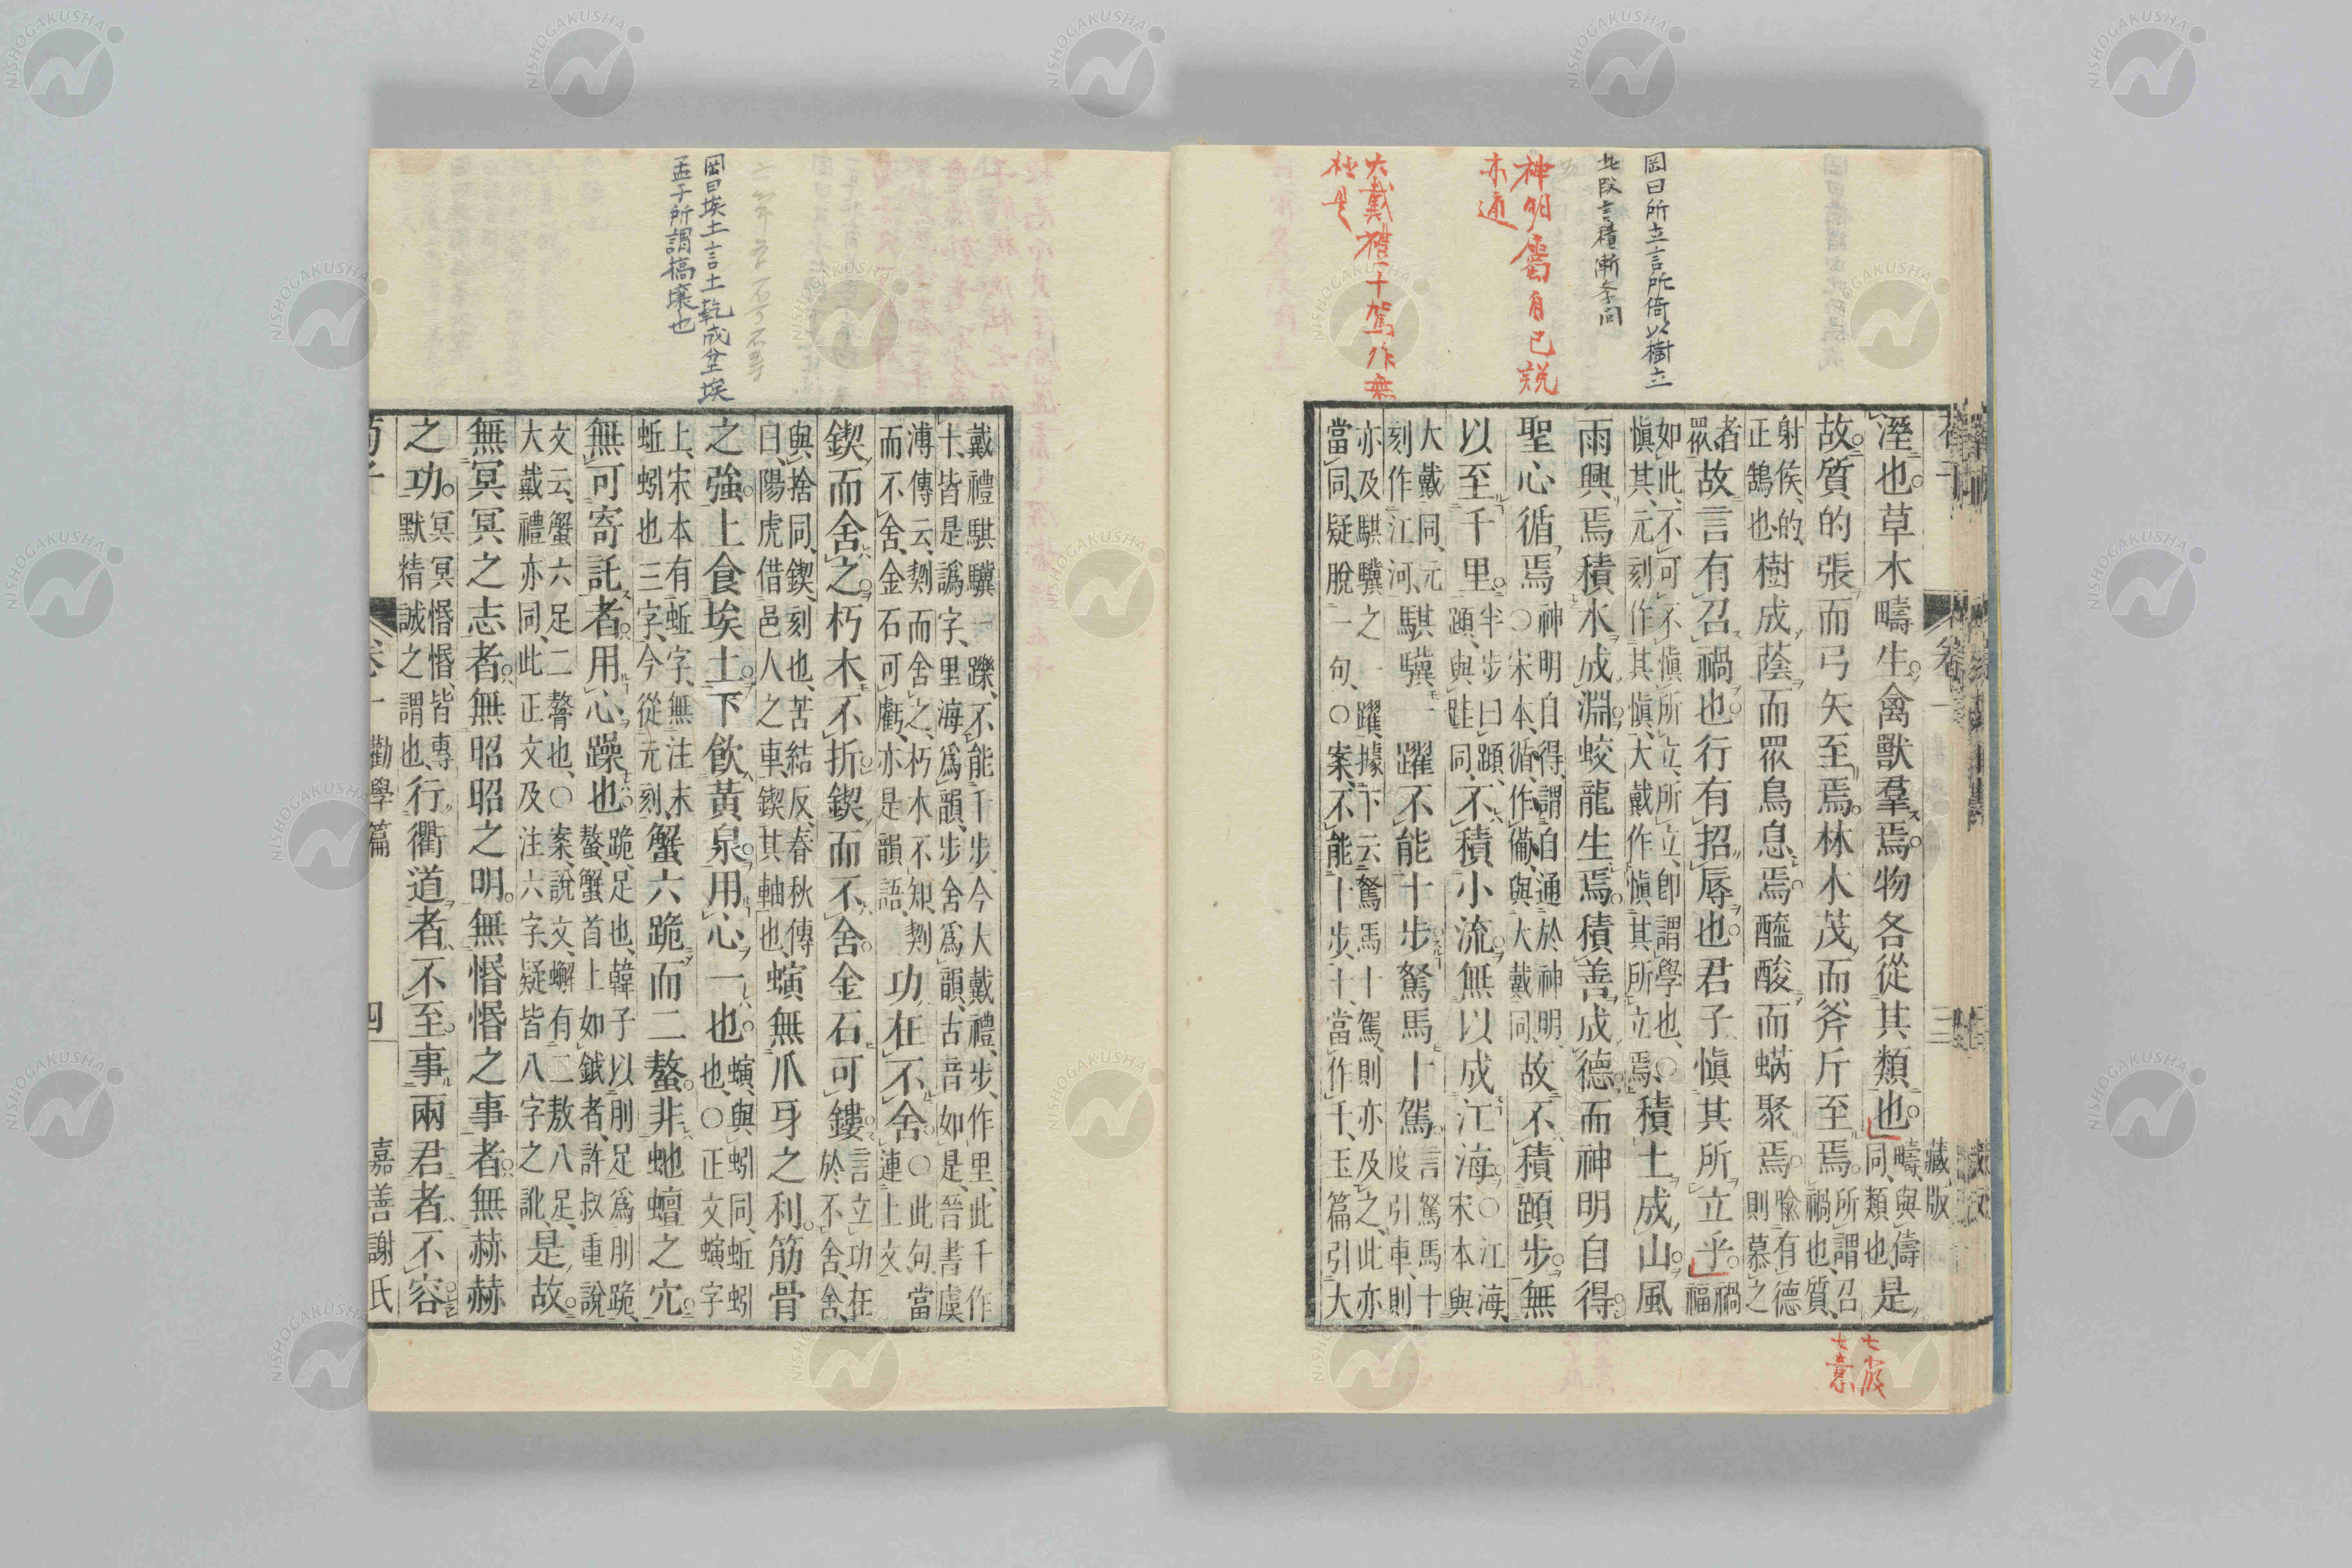 岡曰所立言所倚以樹立
神明屬自己説
亦通
大戴禮十駕作無
極是
藏版
溼也。草木疇生。禽獸羣焉。物各從其類也。疇、與儔同、類也是
故質的張而弓矢至焉。林木茂而斧斤至焉。所謂召禍也、質、
射侯、的、正鵠也樹成蔭而眾鳥息焉。醯酸而蜹聚焉。喻有德則慕之
者眾故言有召禍也。行有招辱也。君子慎其所立乎。禍福
如此、不可不慎所立、所立、卽謂學也、○慎其、元刻作其慎、大戴作慎其所立焉、積土成山。風
雨興焉。積水成淵。蛟龍生焉。積善成德。而神明自得。
聖心循焉神明自得、謂自通於神明、○宋本、循、作備、與大戴同、故不積蹞步。無
以至千里。半步曰蹞、蹞與跬同、不積小流。無以成江海。○江海、宋本與
大戴同、元刻作江河、騏驥一躍不能十步。駑馬十駕。言駑馬十度引車、則
亦及騏驥之一躍、據下云駑馬十駕、則亦及之、此亦當同、疑脫一句、○案、不能十步、十、當作千、玉篇引大
七霰
七豪
岡曰埃土言土乾成塵埃
孟子所謂槁壤也
戴禮騏驥一躒、不能千步、今大戴禮、步、作里、此千作十、皆是譌字、里海爲韻、步舍爲韻、古音如是、晉書虞
溥傳云、剝而舍之、朽木不知、剝而不舍、金石可虧、亦是韻語、功在不舍。○此句當連上文
鍥而舍之。朽木不折。鍥而不舍。金石可鏤。言立功在於不舍、舍、
與捨同、鍥、刻也、苦結反、春秋傳曰、陽虎借邑人之車、鍥其軸也、螾無爪牙之利。筋骨
之強。上食埃土。下飮黃泉。用心一也。螾、與蚓同、蚯蚓也、○正文螾字
上、宋本有蚯字、無注末蚯蚓也三字、今從元刻、蟹六跪而二螯。非虵蟺之穴。
無可寄託者。用心躁也。跪、足也、韓子以刖足爲刖跪、螯、蟹首上如鉞者、許叔重說
文云、蟹六足二螯也、○案、說文、蠏有二敖八足、大戴禮亦同、此正文及注六字、疑皆八字之訛、是故。
無冥冥之志者。無昭昭之明。無惛惛之事者。無赫赫
之功。冥冥惛惛、皆專默精誠之謂也、行衢道者、不至。事兩君者、不容。
勸學篇　四　嘉善謝氏